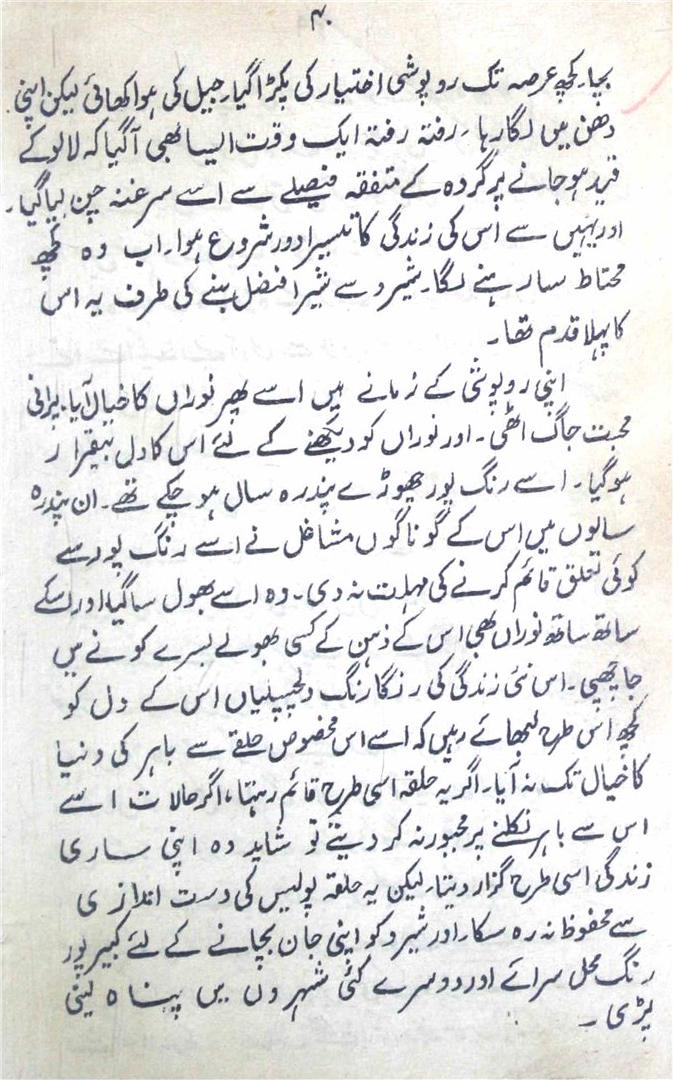 ۴۰
بچا۔ کچھ عرصہ تک روپوشی اختیار کی پکڑا گیا۔ جیل کی ہوا کھائی لیکن اپنی
دھن میں لگا رہا۔ رفتہ رفتہ ایک وقت ایسا بھی آگیا کہ لالو کے
قید ہو جانے پر گروہ کے متفقہ فیصلے سے اسے سرغنہ چن لیا گیا۔
اور یہیں سے اس کی زندگی کا تیسرا دور شروع ہوا۔ اب وہ کچھ
محتاط سا رہنے لگا۔ شیرو سے شیر افضل بننے کی طرف یہ اس
کا پہلا قدم تھا۔
اپنی روپوشی کے زمانے میں اسے پھر نوراں کا خیال آیا۔ پرانی
محبت جاگ اٹھی۔ اور نوراں کو دیکھنے کے لئے اس کا دل بیقرار
ہو گیا۔ اسے رنگ پور چھوڑے پندرہ سال ہو چکے تھے۔ ان پندرہ
سالوں میں اس کے گوناگوں مشاغل نے اسے رنگ پور سے
کوئی تعلق قائم کرنے کی مہلت نہ دی۔ وہ اسے بھول سا گیا اور اسکے
ساتھ ساتھ نوراں بھی اس کے ذہن کے کسی بھولے بسرے کونے میں
جا چھپی۔ اس نئی زندگی کی رنگارنگ دلچسپیاں اس کے دل کو
کچھ اس طرح لبھائے رہیں کہ اسے اس مخصوص حلقے سے باہر کی دنیا
کا خیال تک نہ آیا۔ اگر یہ حلقہ اسی طرح قائم رہتا، اگر حالات اسے
اس سے باہر نکلنے پر مجبور نہ کر دیتے تو شاید وہ اپنی ساری
زندگی اسی طرح گزار دیتا۔ لیکن یہ حلقہ پولیس کی دست اندازی
سے محفوظ نہ رہ سکا۔ اور شیرو کو اپنی جان بچانے کے لئے کبیر پور
رنگ محل سرائے اور دوسرے کئی شہروں میں پناہ لینی
پڑی۔